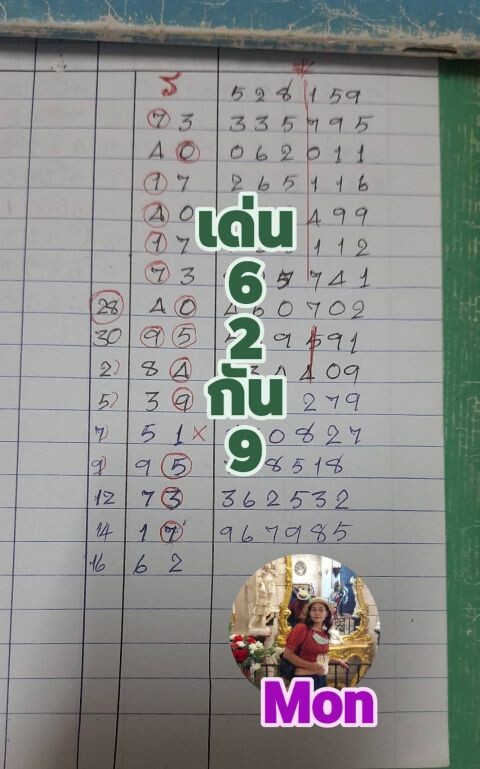 ร *
528159
73 335795
40 062011
17 265116
40 499
17 112
73 5741
28 40 460702
30 95 9591
2) 84 409
5) 39 279
7) 51 × 0827
9) 95 8518
12 73 362532
14 17 967985
16 62
เด่น
6
2
กัน
9
Mon